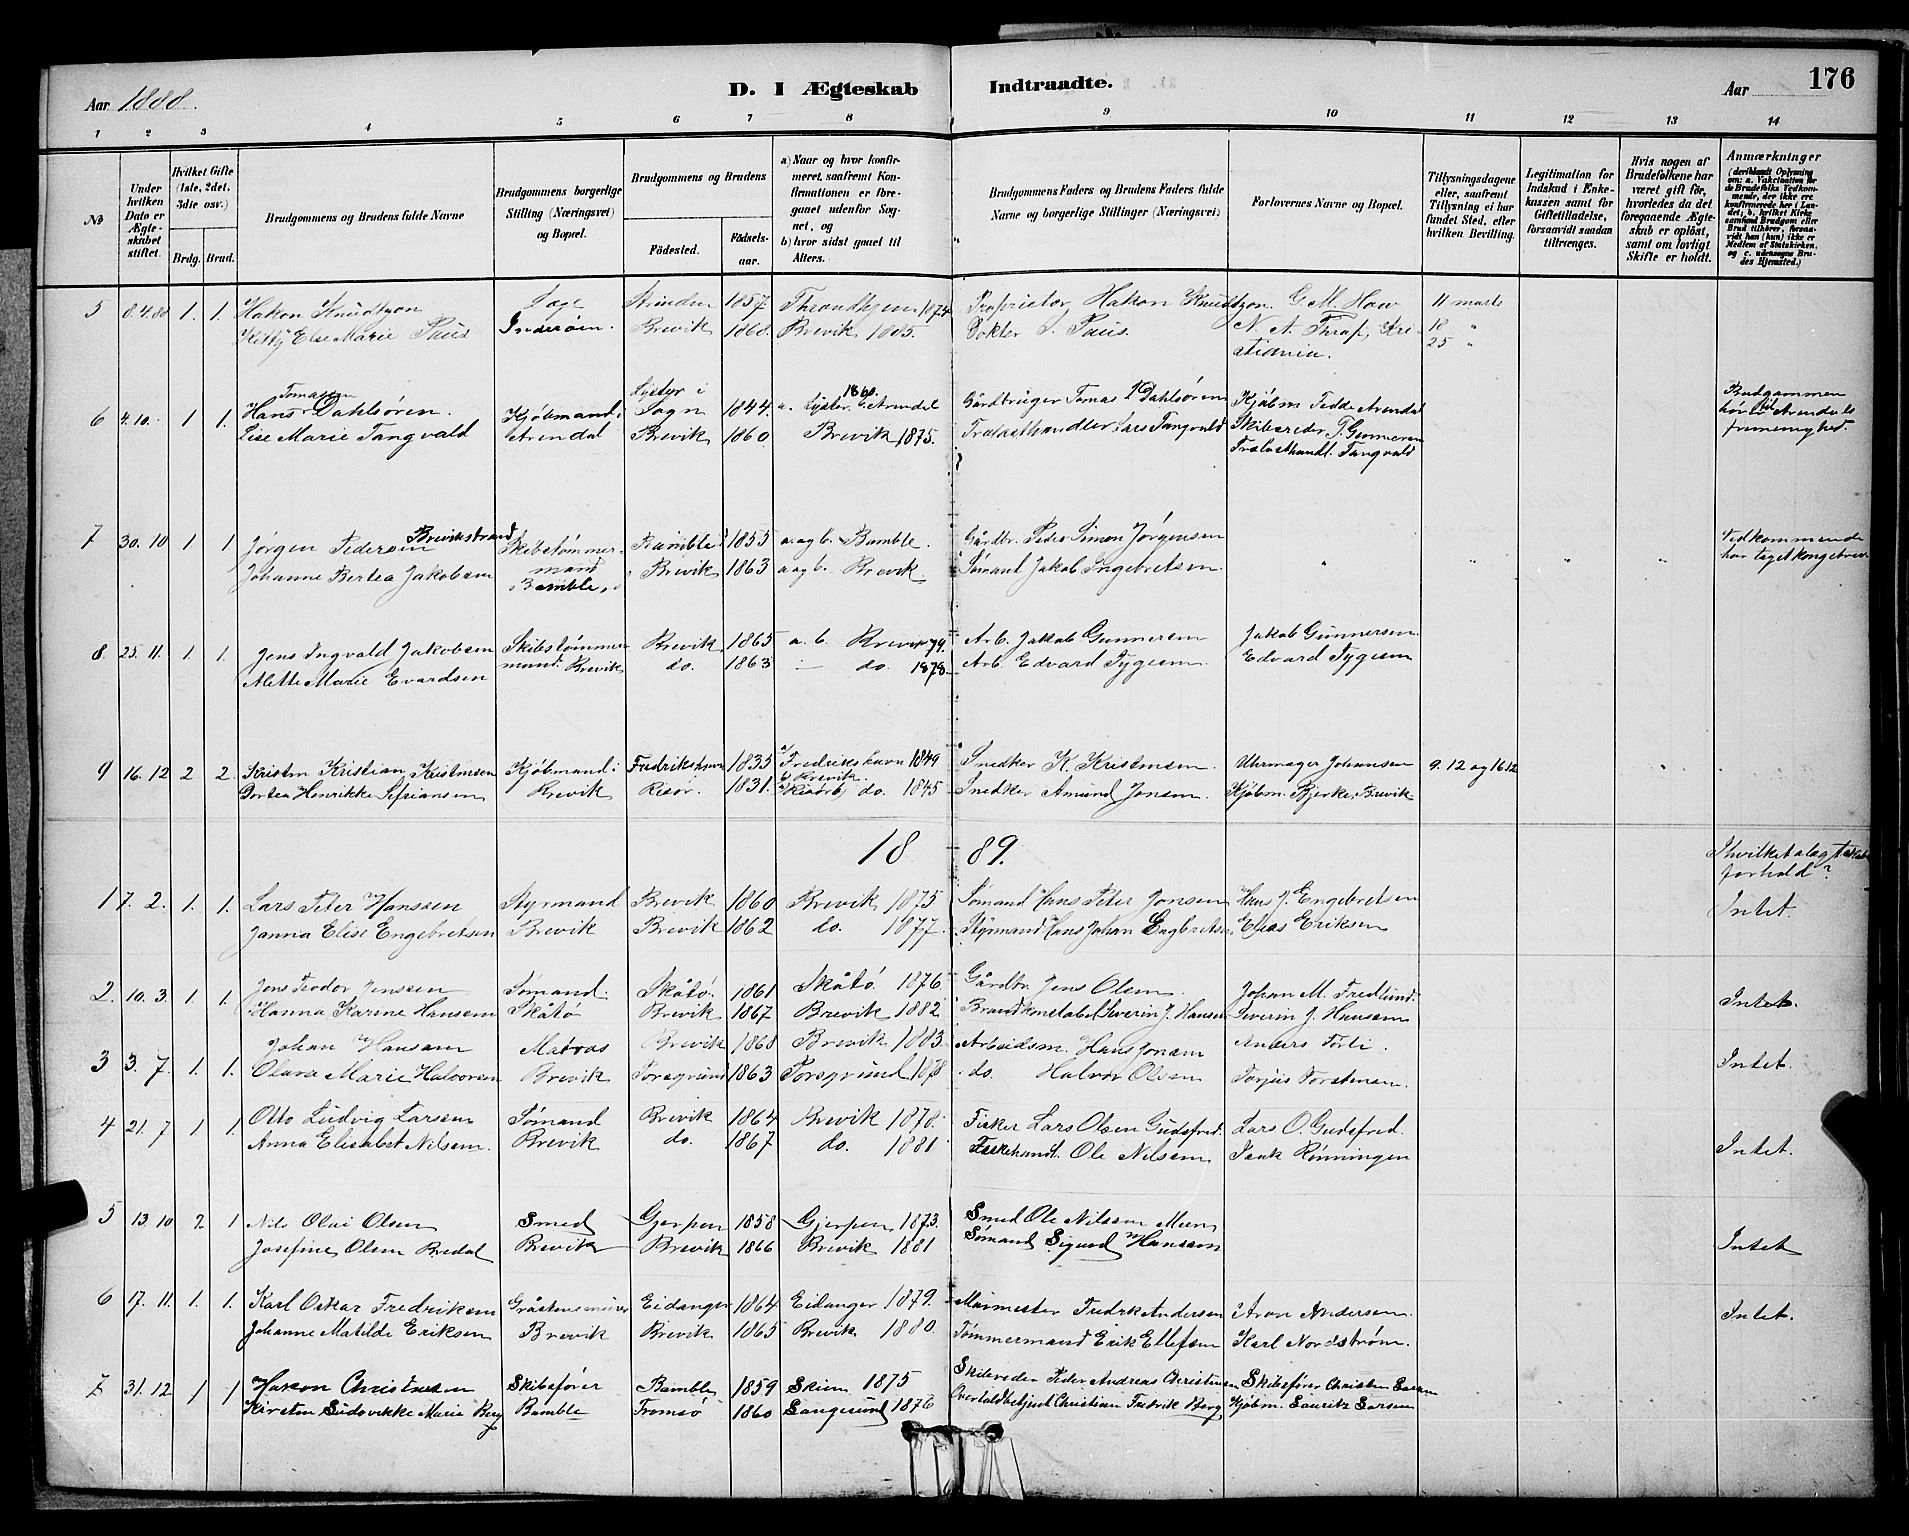 Aar 1888. D. I Ægteskab Indtraadte. Aar 176
1 2 3 4 5 6 7 8 9 10 11 12 13 14
No
Under hvilken Dato er Ægteskabet stiftet.
Hvilket Gifte (1ste, 2det, 3die osv.)
Brdg. Brud.
Brudgommens og Brudens fulde Navne
Brudgommens borgerlige Stilling (Næringsvei) og Bopæl.
Brudgommens og Brudens
Fødested. Fødselsaar.
a) Naar og hvor konfirmeret, saafremt Konfirmationen er foregaaet udenfor Sognet, og
b) hvor sidst gaaet til Alters.
Brudgommens Faders og Brudens Faders fulde Navne og borgerlige Stillinger (Næringsvei)
Forlovernes Navne og Bopæl.
Tillysningsdagene eller, saafremt Tillysning ei har fundet Sted, efter hvilken Bevilling.
Legitimation for Indskud i Enkekassen samt for Giftetilladelse, forsaavidt saadan tiltrænges.
Hvis nogen af Brudefolkene har været gift før, hvorledes da det foregaaende Ægteskab er opløst, samt om lovligt Skifte er holdt.
Anmærkninger (deriblandt Oplysning om: a. Vakcination for de Brudefolks Vedkommende, der ikke ere konfirmerede her i Landet; b. hvilket Kirkesamfund Brudgom eller Brud tilhører, forsaavidt han (hun) ikke er Medlem af Statskirken, og c. udensogns Brudes Hjemsted.)
5 8.4.88 1. 1. Hakon Knudtzon Strinden 1857 Throndhjem 1874 Proprietær Hakon Knudtzon. 11 marts
Kitty Else Marie Paus Inderøen. Brevik 1868. Brevik 1885. Doktor Paus. N. A. Thrap, Kri- 18 "
stiania. 25 "
6 4.10. 1 1. Hans Tomassen Dahlsören. Kjöbmand i Sogn 1844. a. Arendal 1860. Gårdbruger Tomas Dahlsören Kjöbm. Arendal Brudgommen
Lise Marie Tangvald Arendal Brevik 1860 Brevik 1875. Trælasthandler Lars Tangvald Skibsreder
Trælasthandl. Tangvald
7 30. 10 1 1. Jørgen Pedersen Brevikstrand Skibstømmer- Bamble 1855 a. og b. Bamble. Gårdbr. Simon Jørgensen Vedkommende
Johanne Bertea Jakobsen mand Bamble. Brevik 1863 a og b. Brevik. Sömand Jakob Ingebretsen. " " " " har taget kongebrev.
8. 25. 11. 1. 1. Jens Ingvald Jakobsen Skibstømmer- Brevik 1865 a. b. Brevik 79. Arb. Jakob Gunnersen Jakob Gunnersen.
Alette Marie Evardsen mand. Brevik do. 1863 do. 1878. Arb. Edvard Tygesen. Edvard Tygesen
9 16. 12 2 2. Kristen Kristian Kristensen Kjöbmand i Fredrikshavn 1835 a/ Frederikshavn 1849 b/ Brevik. Snedker K. Kristensen. Uhrmager Johansen 9. 12 og 16 12
Dortea Henrikke Sefriansen Brevik Risør. 1831. a/ Risør b/ do. 1845 Snedker Amund Jonsen. Kjöbm. Bjerke, Brevik
18 89.
I hvilket slægtskabs forhold?
1 7. 2. 1. 1. Lars Peter Hanssen Styrmand Brevik 1860 Brevik 1875 Sömand Hans Peter Jonsen Hans J. Engebretsen Intet.
Janna Elise Engebretsen Brevik Brevik 1862 do. 1877. Styrmand Hans Johan Engbretsen Elias Eriksen
2. 10. 3. 1. 1. Jens Teodor Jenssen Sömand. Skåtö. 1861 Skåtö. 1876. Gårdbr. Jens Olsen. Johan M. Fredlund.
Hanna Karine Hansen Skåtö Brevik 1867 Brevik 1882 Brandkonstabel Severin J. Hansen Severin J. Hansen Intet.
3 3. 7. 1. 1. Johan Hansen Matros Brevik 1868 Brevik 1883. Arbeidsm. Hans Jonsen Anders
Olava Marie Halvorsen Brevik Porsgrund 1863 Porsgrund 1878 do. Halvor Olsen Torjus Torstensen. Intet.
4 21. 7 1 1. Otto Ludvig Larssen Sömand Brevik 1864 Brevik 1878. Fisker Lars Olsen Gudsfred. Lars O. Gudsfred.
Anna Elisabet Nilsen. Brevik do. 1867 do. 1881 Fiskehandl. Ole Nilsen Isak Rønningen Intet.
5 13. 10 2. 1 Nils Olai Olsen Smed Gjerpen 1858 Gjerpen 1873. Smed Ole Nilssen Meen
Josefine Olsen Bredal Brevik Brevik 1866 Brevik 1881 Sømand Sigurd Hansen Intet
6 17. 11. 1. 1. Karl Oskar Fredriksen Gråstensmurer Eidanger 1864 Eidanger 1879. Murmester Fredrk Andersen Aron Andersen. Intet.
Johanne Matilde Eriksen Brevik Brevik 1865 Brevik 1880. Tömmermand Erik Ellefsen Karl Nordstrøm.
7 31. 12 1 1 Hakon Christensen Skibsfører Bamble 1859 Skien 1875 Skibsreder Peder Andreas Christensen Skibsfører Christen Larsen
Kirsten Ludovikke Marie Berg Bamble Tromsö 1860 Langesund 1876 Overtoldbetjent Christian Fredrik Berg Kjøbm. Lauritz Larsen